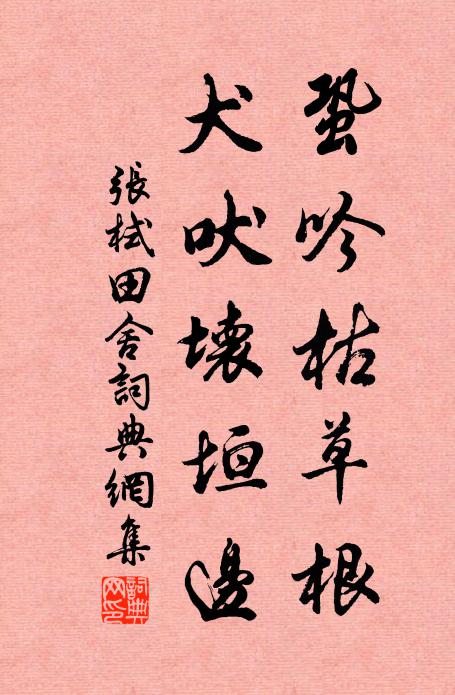 蛩吟枯草根
犬吠壞垣邊
張栻田舍詞典網集
詞典網印